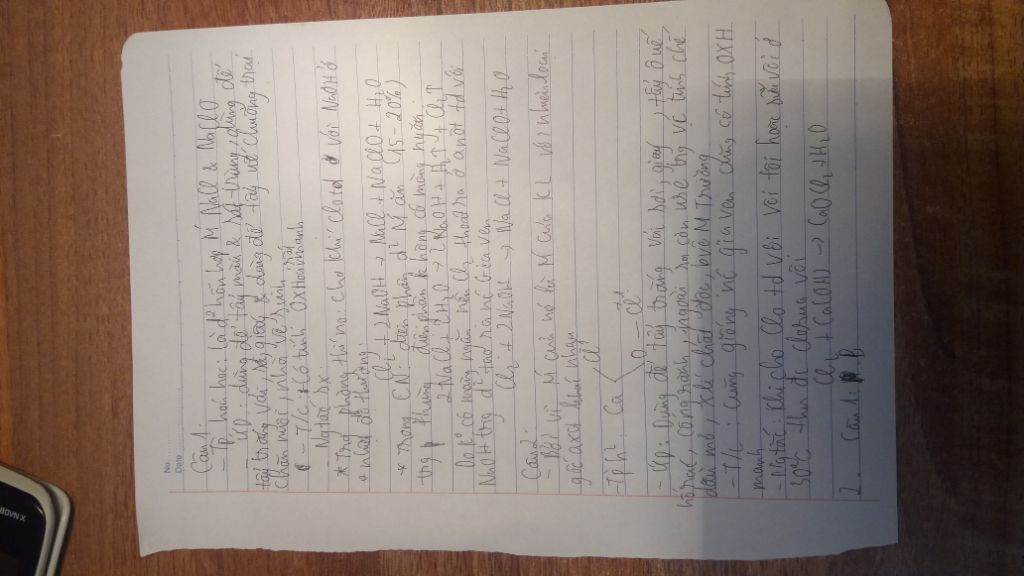 No.
Date
Câu 1:
- Tp hoá học: là d² hỗn hợp M' NaCl & NaClO
- ƯD: dùng để tẩy màu & sát trùng, dùng để
tẩy trắng vải, sợi, giấy & dùng để tẩy uế chuồng trại
chăn nuôi, nhà vệ sinh
- T/c: Có tính OXH mạnh
- Ng tắc sx:
* Trg phòng thí ng: cho khí clo td với NaOH ở
nhiệt độ thường:
Cl₂ + 2NaOH → NaCl + NaClO + H₂O
* Trong CN: điện phân d² M' ăn (15 - 20%)
trg thùng điện phân k hông có màng ngăn.
2NaCl + 2H₂O → 2NaOH + H₂↑ + Cl₂↑
Do k° có màng ngăn nên Cl₂ thoát ra ở anốt td với
NaOH trg d² tạo ra nc Gia-ven
Cl₂ + 2NaOH → NaCl + NaClO + H₂O
Câu 2:
- Bởi vì M' của nó là M' của KL với nhiều loại
gốc axit khác nhau
- TPhh: Ca Cl O - Cl
- ƯD: Dùng để tẩy trắng vải sợi, giấy, tẩy uế
hố rác, cống rãnh, ngoài ra còn use trg vc tinh chế
dầu mỏ, xử lí chất độc, bvệ M Trường
- T/c: Cũng giống nc gia ven cũng có tính OXH
mạnh
- Ng tắc: Khi cho Clo td vs vôi tôi hoặc sữa vôi ở
30°C thu đc clorua vôi
Cl₂ + Ca(OH) → CaOCl₂ + H₂O
2. Câu 1: B
BDVN X